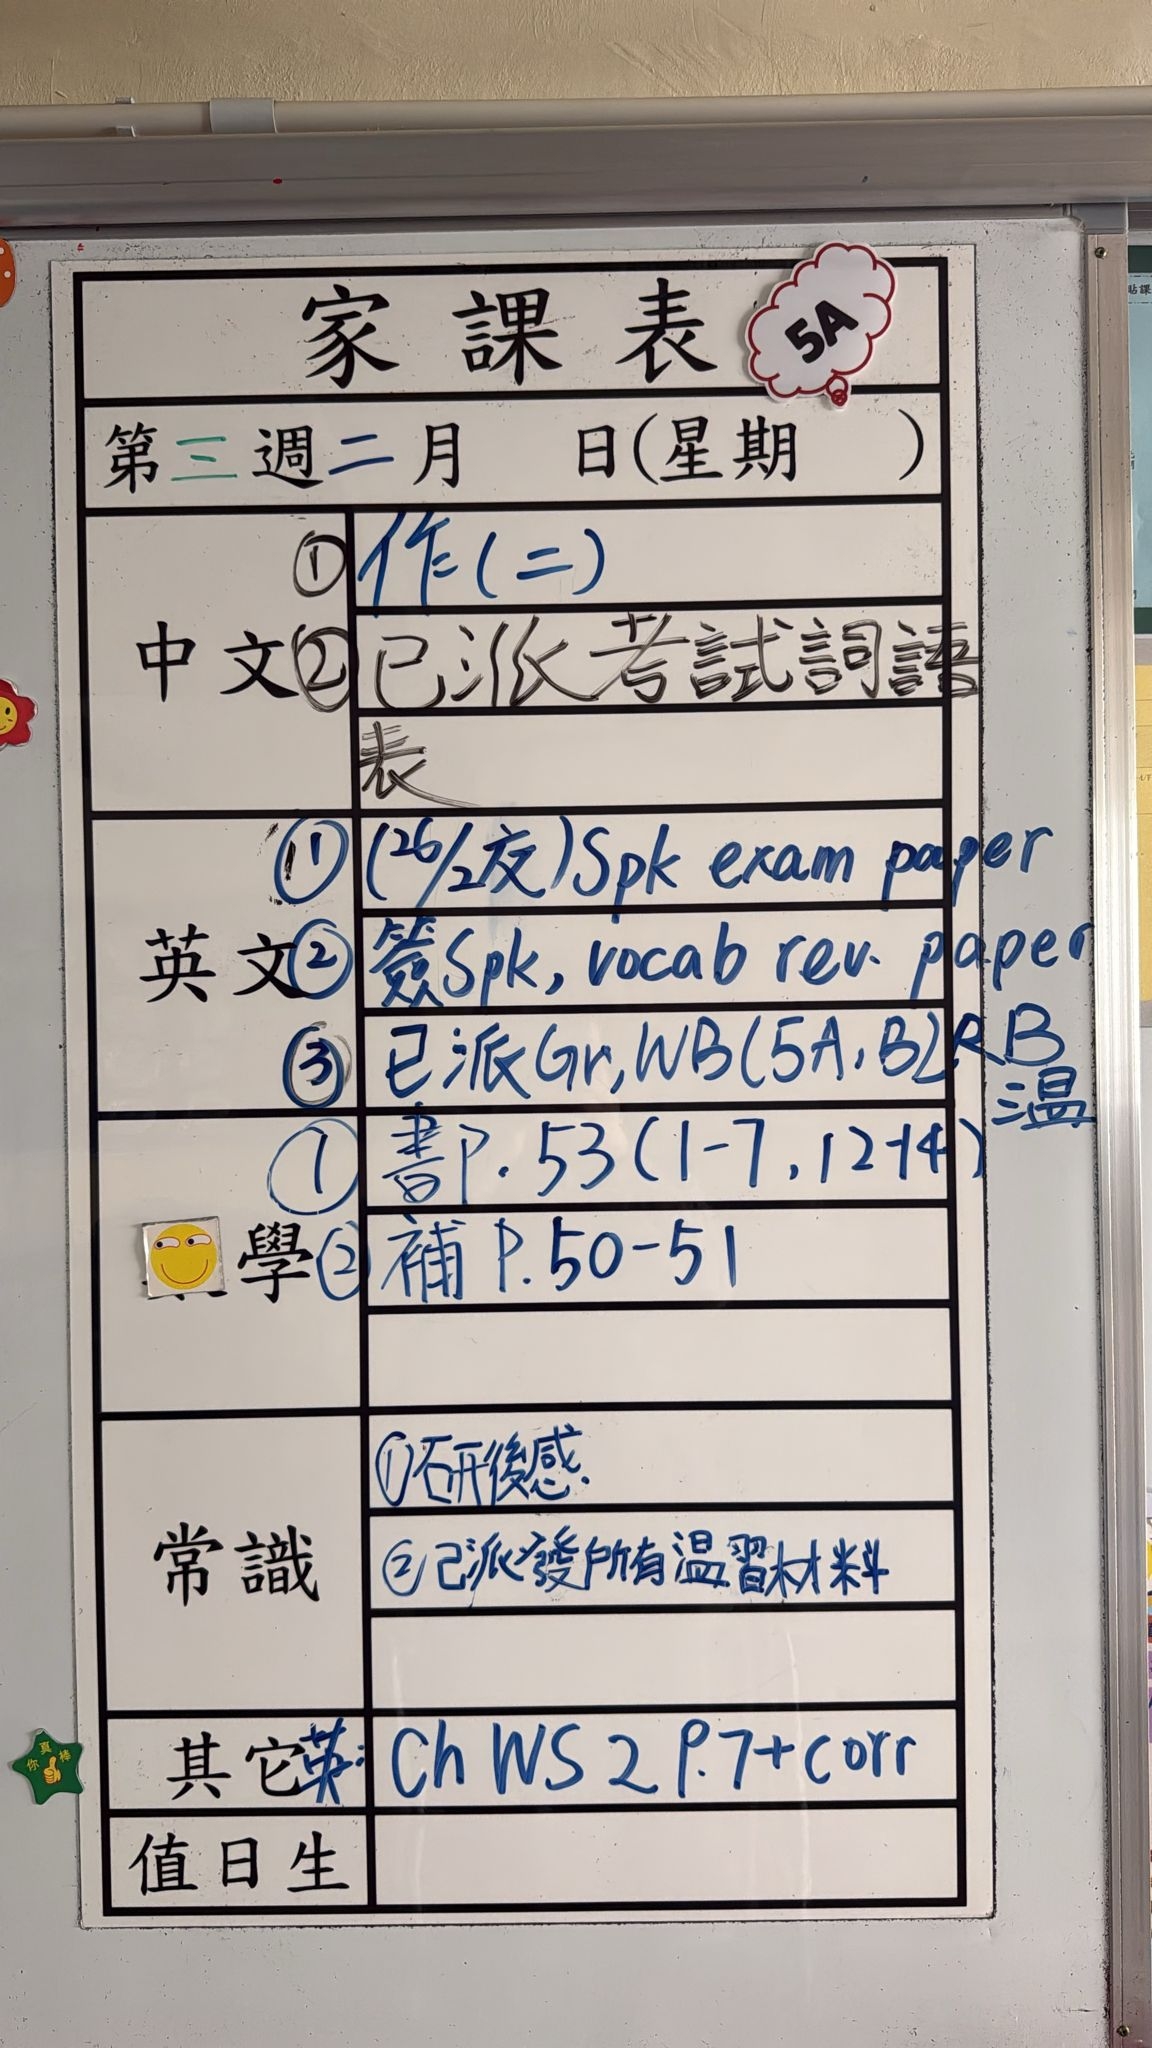 家課表 5A
第三週二月 日(星期 )
中文 ① 作(二)
② 已派考試詞語
表
英文 ① (26/2交)Spk exam paper
② 簽Spk, vocab rev. paper
③ 已派Gr, WB(5A,B) RB
溫
① 書P.53(1-7,12-14)
學 ② 補P.50-51
常識 ①研後感.
②已派發所有溫習材料
其它 英: Ch WS 2 P.7+corr
值日生
你真棒
貼課